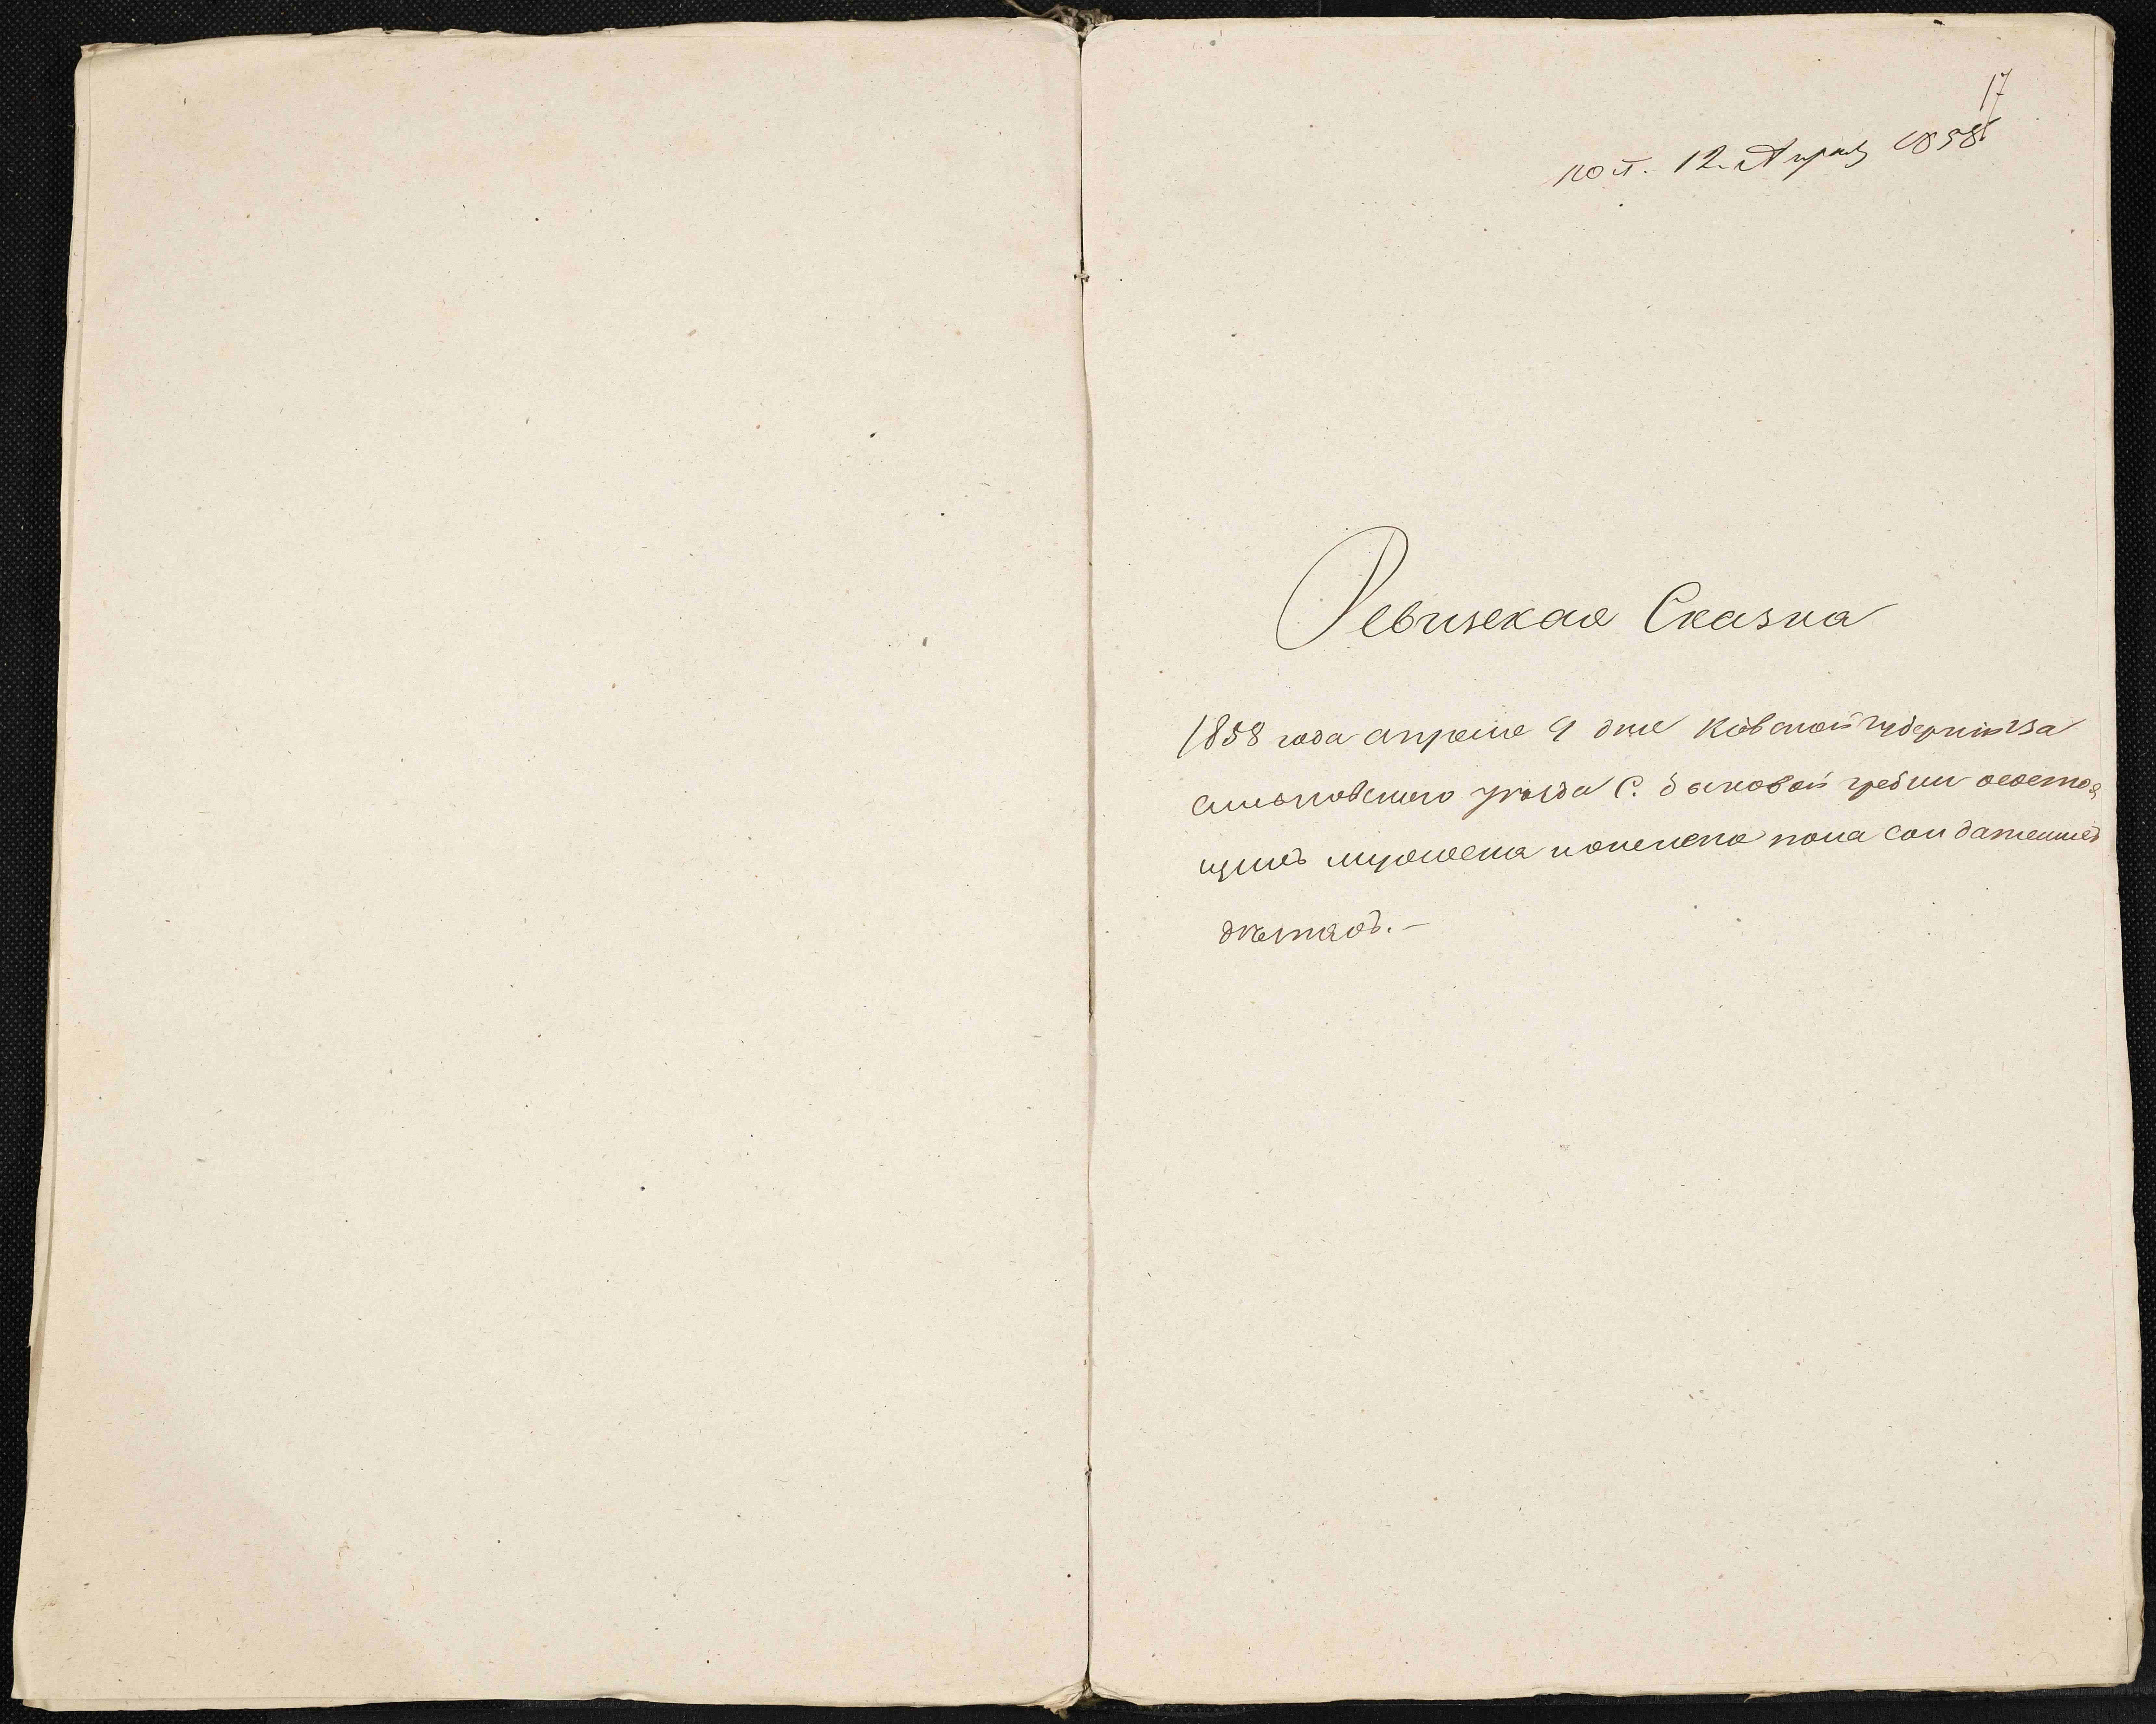 17
пол. 12 Апрел 1858
Ревизская Сказка
1858 года апреля 9 дня Кіевской губерніи Ва
сильковского уезда С. Быковой гребли о состоя
щихъ мужеска и женска пола солдатскихъ
дѣтяхъ. —